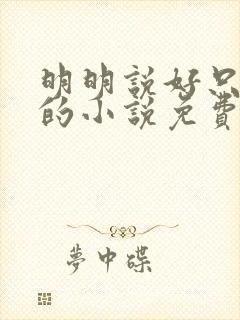 明明說好只
的小說免費
夢中碟